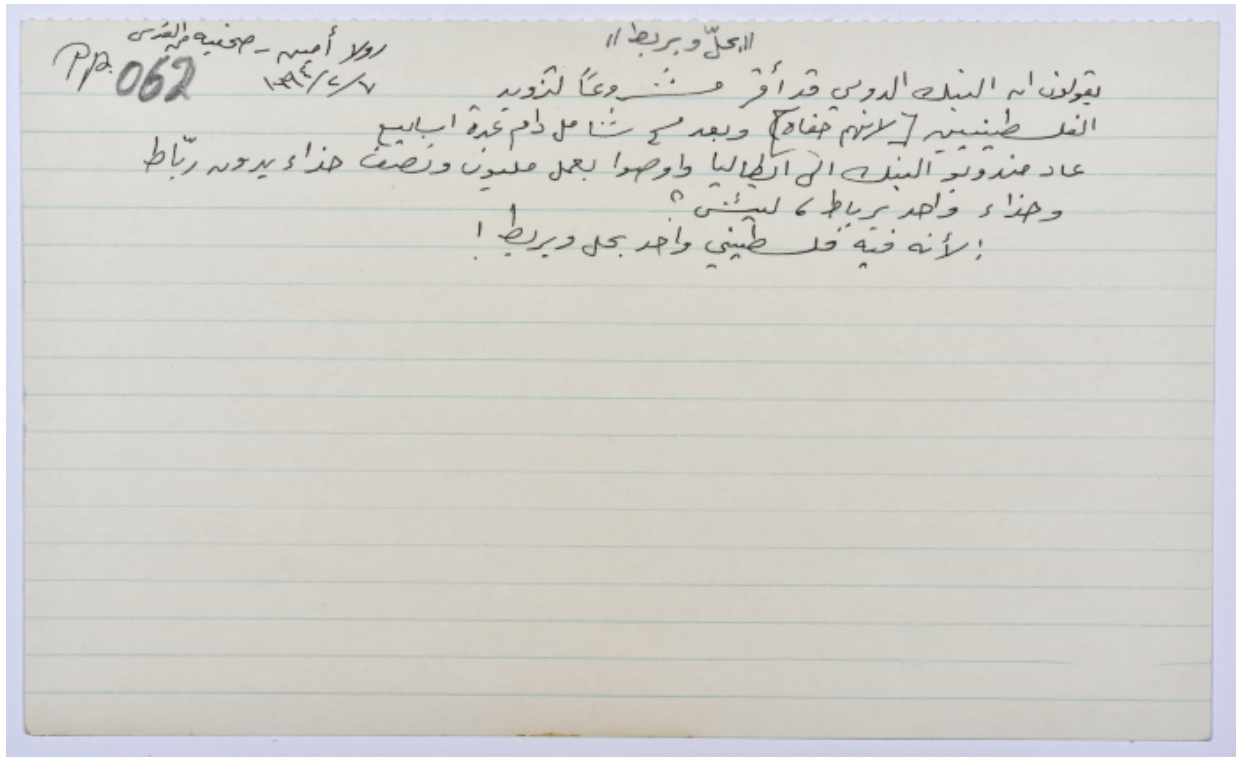 "بحلّ وبربط"
رولا أمين - صحفية من القدس
١٩٩٤/٢/٧
PP. 062
يقولون ان البنك الدولي قد أقر مشروعاً لتزويد
الفلسطينيين [لانهم حفاه] وبعد مسح شامل دام عدة اسابيع
عاد مندوبو البنك الى ايطاليا واوصوا بعمل مليون ونصف حذاء بدون ربّاط
وحذاء واحد برباط، ليش؟
لأنه فيه فلسطيني واحد بحل وبربط!